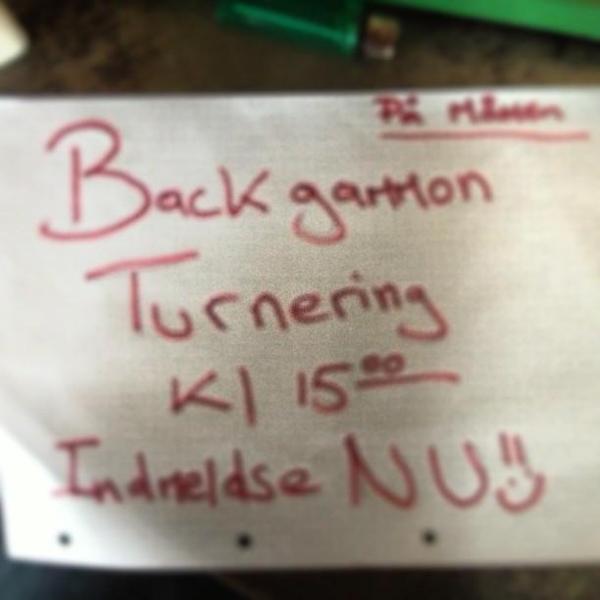 På
Backgammon
Turnering
Kl 15⁰⁰
Indmeldse NU!!